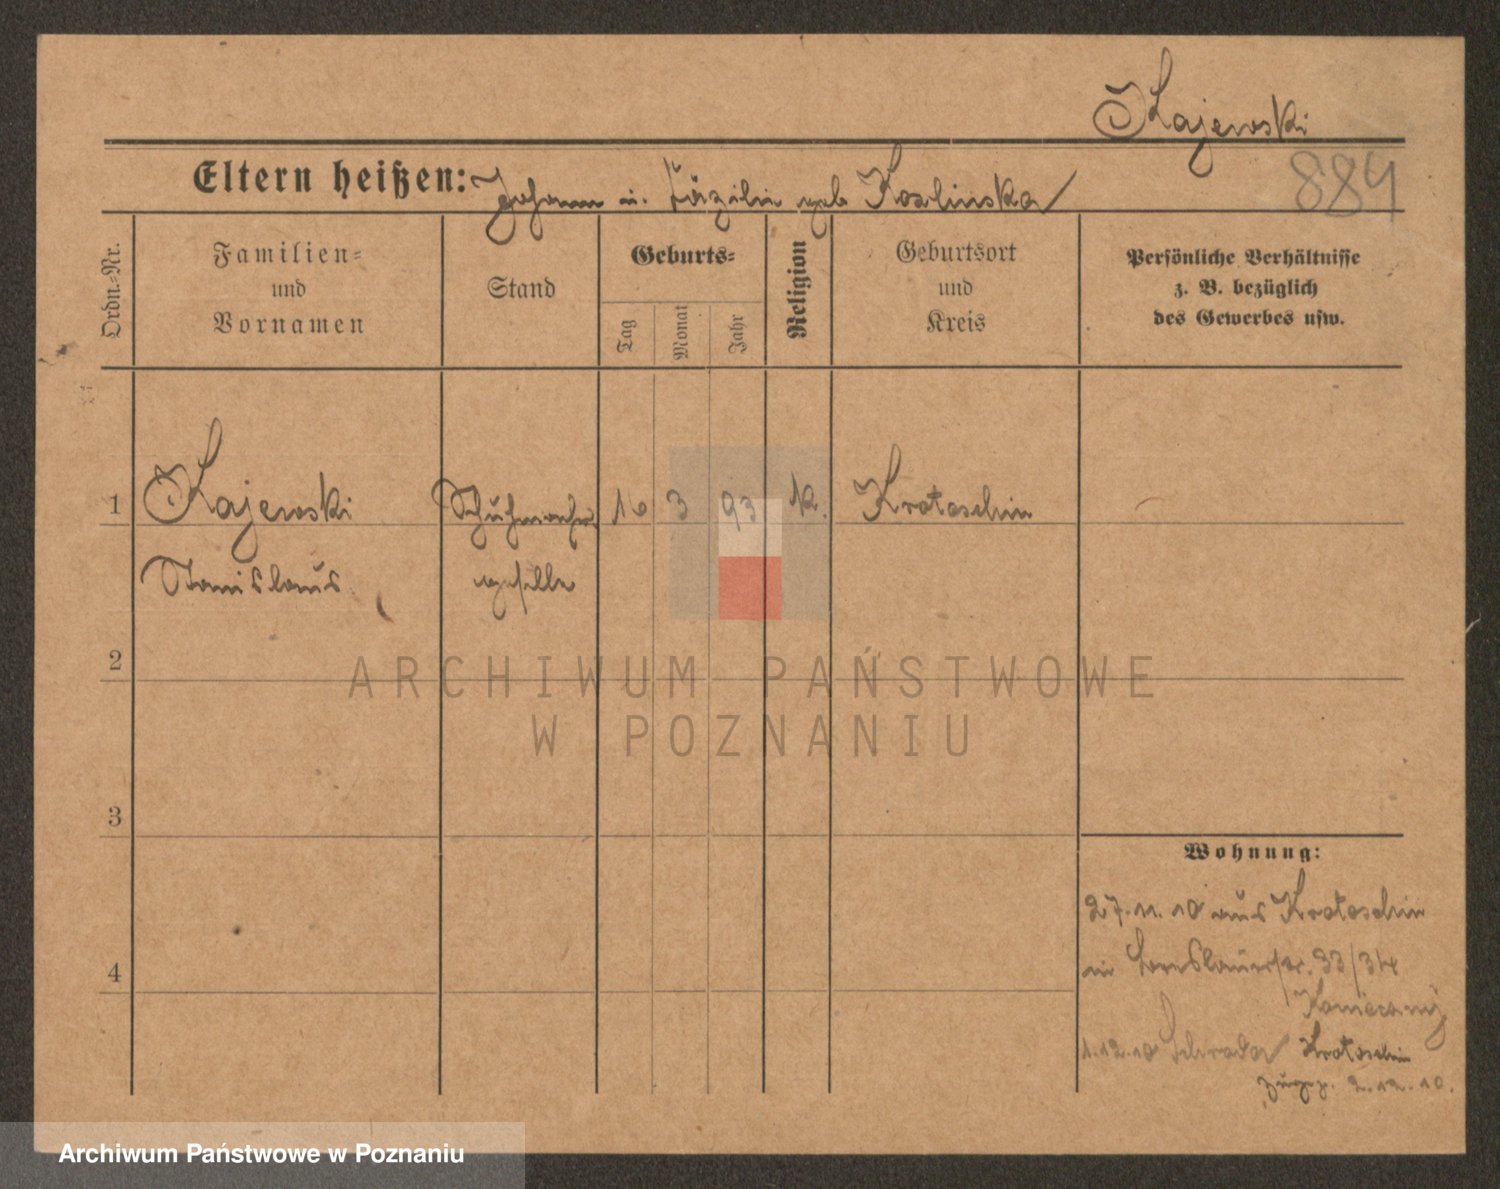 Kajewski
884
Eltern heißen: Johann u. Cäzilie geb Koslinska
Ordn.-Nr.
Familien-
und
Vornamen
Stand
Geburts-
Tag
Monat
Jahr
Religion
Geburtsort
und
Kreis
Persönliche Verhältnisse
z. B. bezüglich
des Gewerbes usw.
1 Kajewski Schuhmacher 10 3 93 k. Krotoschin
Stanislaus geselle
2
ARCHIWUM PAŃSTWOWE
W POZNANIU
3
Wohnung:
27.11.10 aus Krotoschin
in Breslauerstr. 33/34
4
1.12.10 Krotoschin
2.12.10.
Archiwum Państwowe w Poznaniu